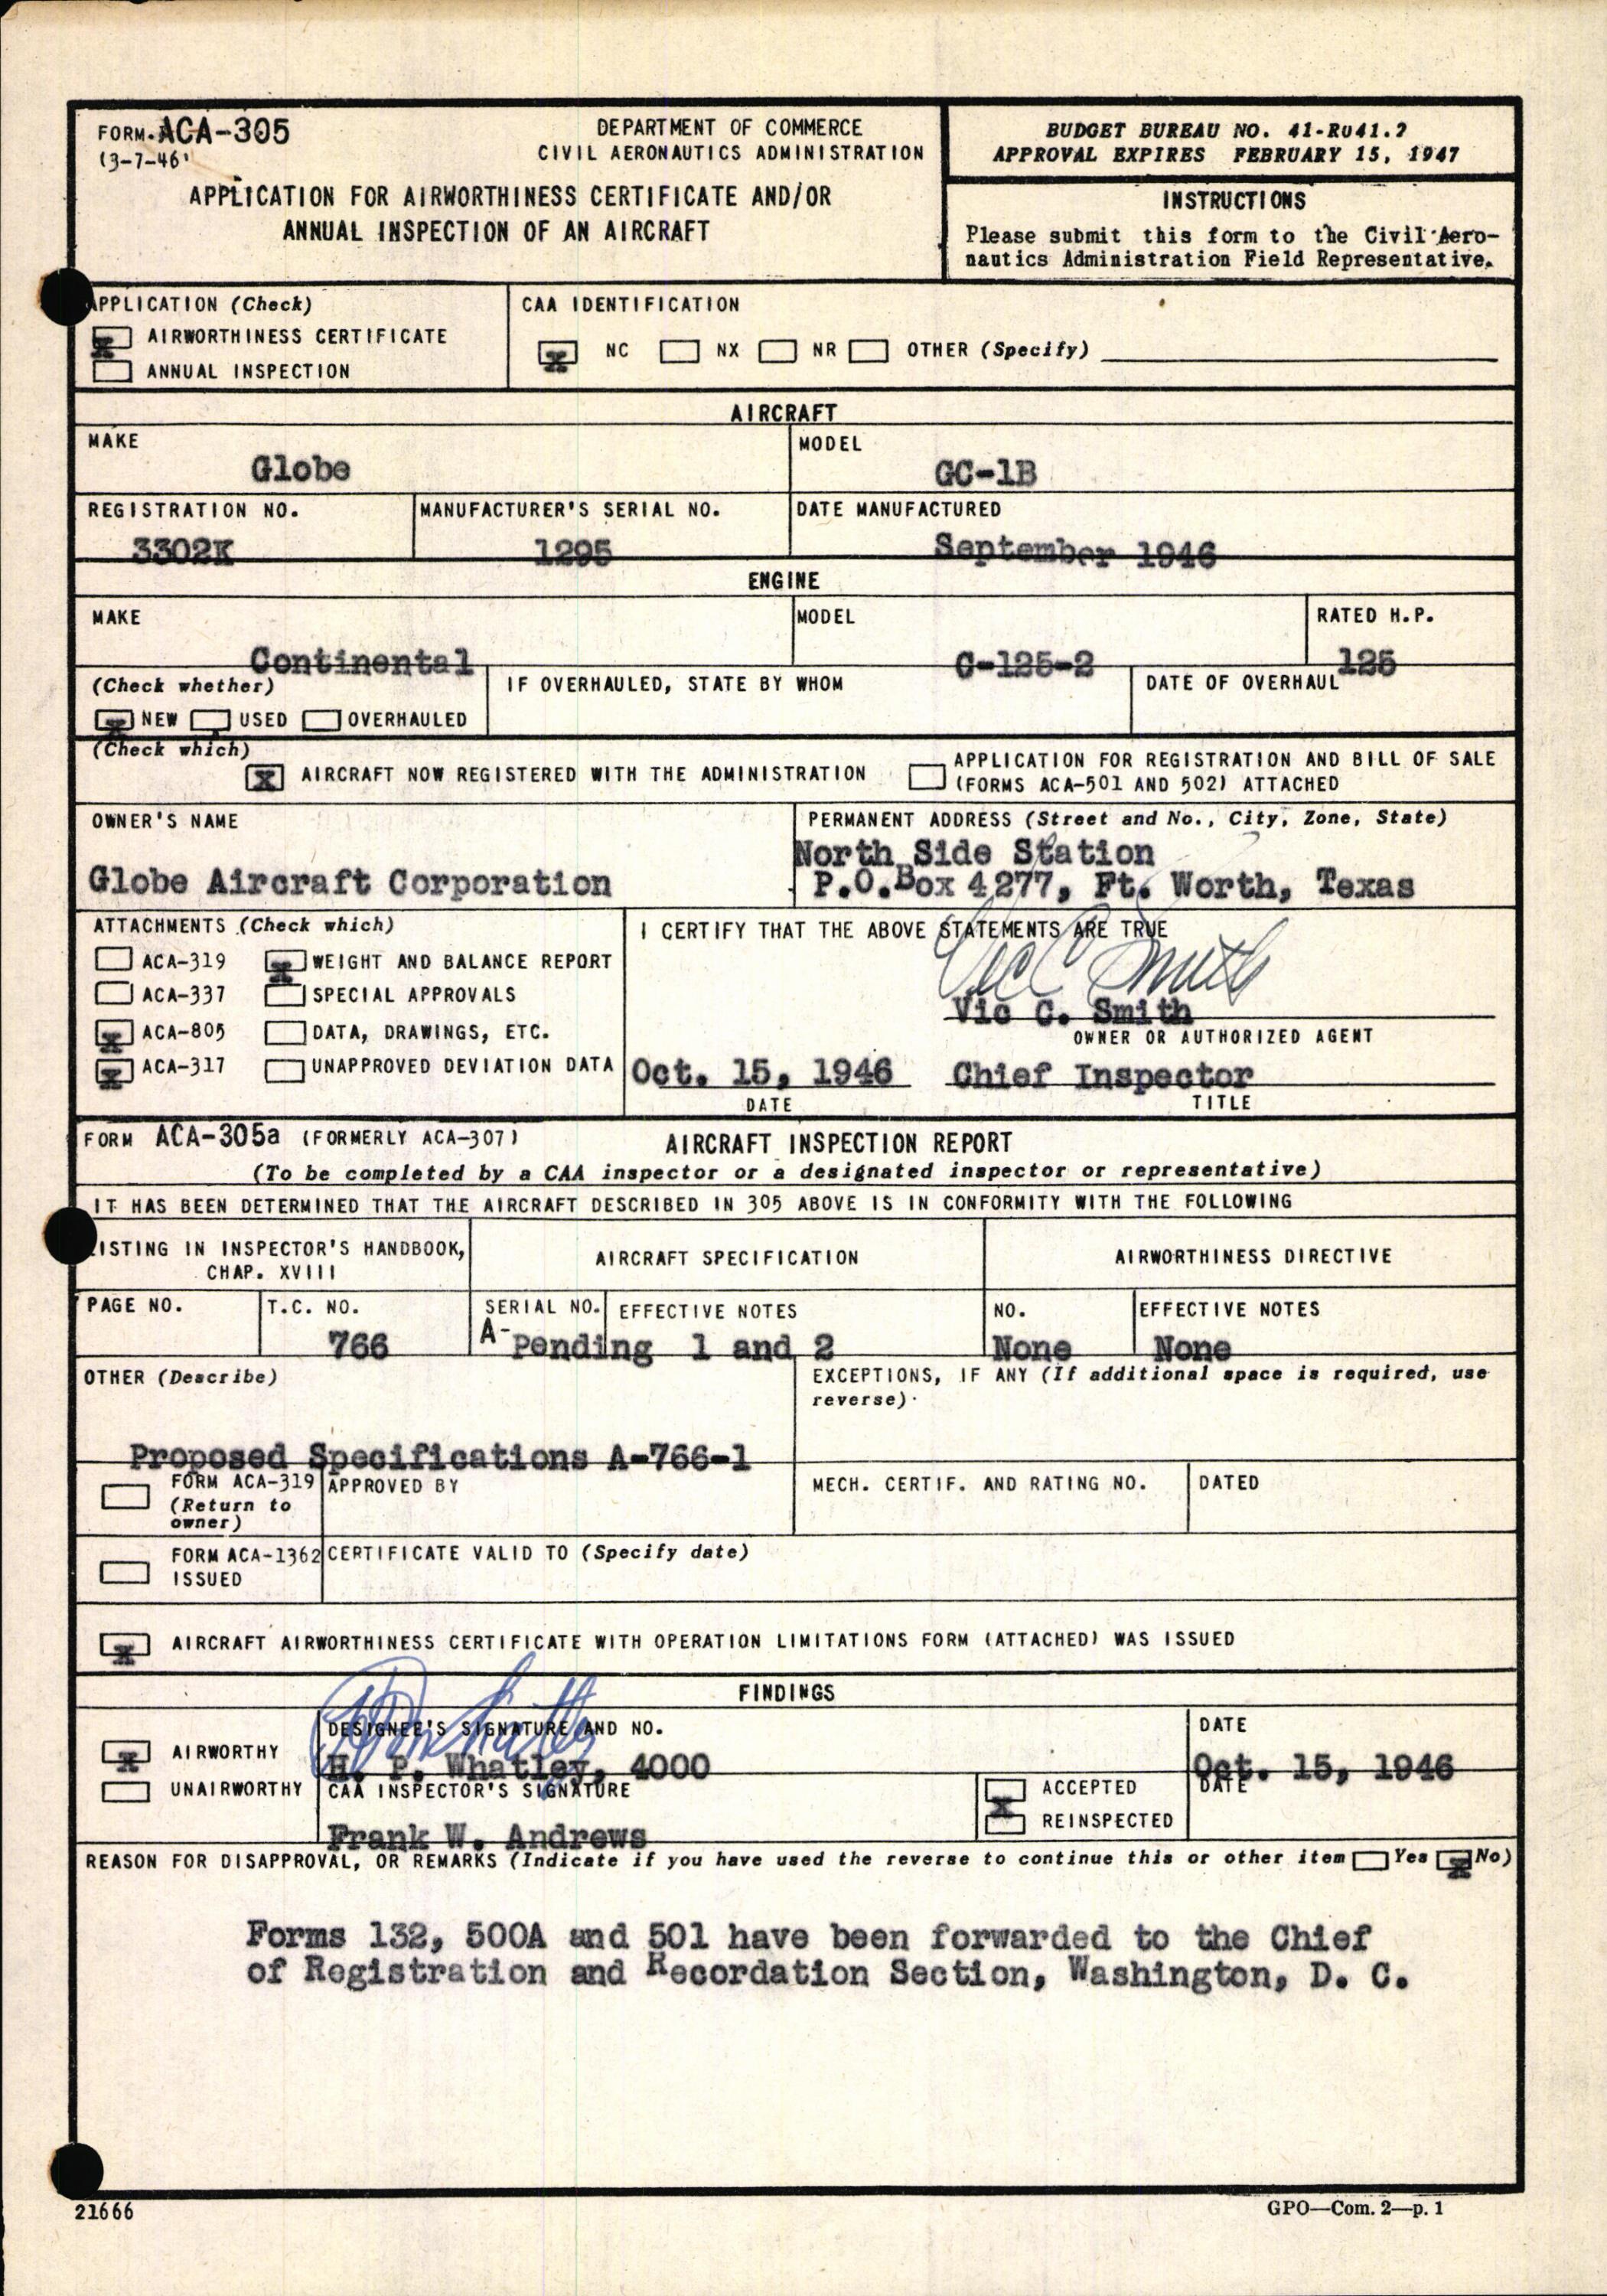 FORM ACA-305
(3-7-46)
DEPARTMENT OF COMMERCE
CIVIL AERONAUTICS ADMINISTRATION
APPLICATION FOR AIRWORTHINESS CERTIFICATE AND/OR
ANNUAL INSPECTION OF AN AIRCRAFT
BUDGET BUREAU NO. 41-R041.2
APPROVAL EXPIRES FEBRUARY 15, 1947
INSTRUCTIONS
Please submit this form to the Civil Aero-
nautics Administration Field Representative.
APPLICATION (Check)
X AIRWORTHINESS CERTIFICATE
ANNUAL INSPECTION
CAA IDENTIFICATION
X NC NX NR OTHER (Specify)
AIRCRAFT
MAKE
Globe
MODEL
GC-1B
REGISTRATION NO.
3302K
MANUFACTURER'S SERIAL NO.
1295
DATE MANUFACTURED
September 1946
ENGINE
MAKE
Continental
MODEL
C-125-2
RATED H.P.
125
(Check whether)
X NEW USED OVERHAULED
IF OVERHAULED, STATE BY WHOM
DATE OF OVERHAUL
(Check which)
X AIRCRAFT NOW REGISTERED WITH THE ADMINISTRATION
APPLICATION FOR REGISTRATION AND BILL OF SALE
(FORMS ACA-501 AND 502) ATTACHED
OWNER'S NAME
Globe Aircraft Corporation
PERMANENT ADDRESS (Street and No., City, Zone, State)
North Side Station
P.O.Box 4277, Ft. Worth, Texas
ATTACHMENTS (Check which)
ACA-319 X WEIGHT AND BALANCE REPORT
ACA-337 SPECIAL APPROVALS
X ACA-805 DATA, DRAWINGS, ETC.
X ACA-317 UNAPPROVED DEVIATION DATA
I CERTIFY THAT THE ABOVE STATEMENTS ARE TRUE
Vic C Smith
Vic C. Smith
OWNER OR AUTHORIZED AGENT
Oct. 15, 1946 Chief Inspector
DATE TITLE
FORM ACA-305a (FORMERLY ACA-307) AIRCRAFT INSPECTION REPORT
(To be completed by a CAA inspector or a designated inspector or representative)
IT HAS BEEN DETERMINED THAT THE AIRCRAFT DESCRIBED IN 305 ABOVE IS IN CONFORMITY WITH THE FOLLOWING
LISTING IN INSPECTOR'S HANDBOOK,
CHAP. XVIII
AIRCRAFT SPECIFICATION
AIRWORTHINESS DIRECTIVE
PAGE NO.
T.C. NO.
766
SERIAL NO. EFFECTIVE NOTES
A-Pending 1 and 2
NO.
None
EFFECTIVE NOTES
None
OTHER (Describe)
Proposed Specifications A-766-1
EXCEPTIONS, IF ANY (If additional space is required, use
reverse)
FORM ACA-319
(Return to
owner)
APPROVED BY
MECH. CERTIF. AND RATING NO.
DATED
FORM ACA-1362
ISSUED
CERTIFICATE VALID TO (Specify date)
X AIRCRAFT AIRWORTHINESS CERTIFICATE WITH OPERATION LIMITATIONS FORM (ATTACHED) WAS ISSUED
FINDINGS
X AIRWORTHY
UNAIRWORTHY
DESIGNEE'S SIGNATURE AND NO.
H. P. Whatley, 4000
DATE
Oct. 15, 1946
CAA INSPECTOR'S SIGNATURE
Frank W. Andrews
ACCEPTED
X
REINSPECTED
DATE
REASON FOR DISAPPROVAL, OR REMARKS (Indicate if you have used the reverse to continue this or other item Yes X No)
Forms 132, 500A and 501 have been forwarded to the Chief
of Registration and Recordation Section, Washington, D. C.
21666
GPO—Com. 2—p. 1